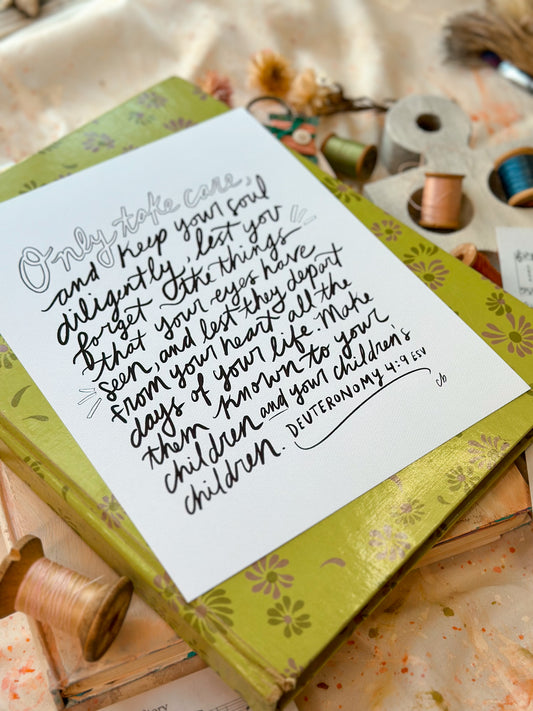 Only take care,
and keep your soul
diligently, lest you
forget the things
that your eyes have
seen, and lest they depart
from your heart all the
days of your life. Make
them known to your
children and your children's
children. DEUTERONOMY 4:9 ESV
cb